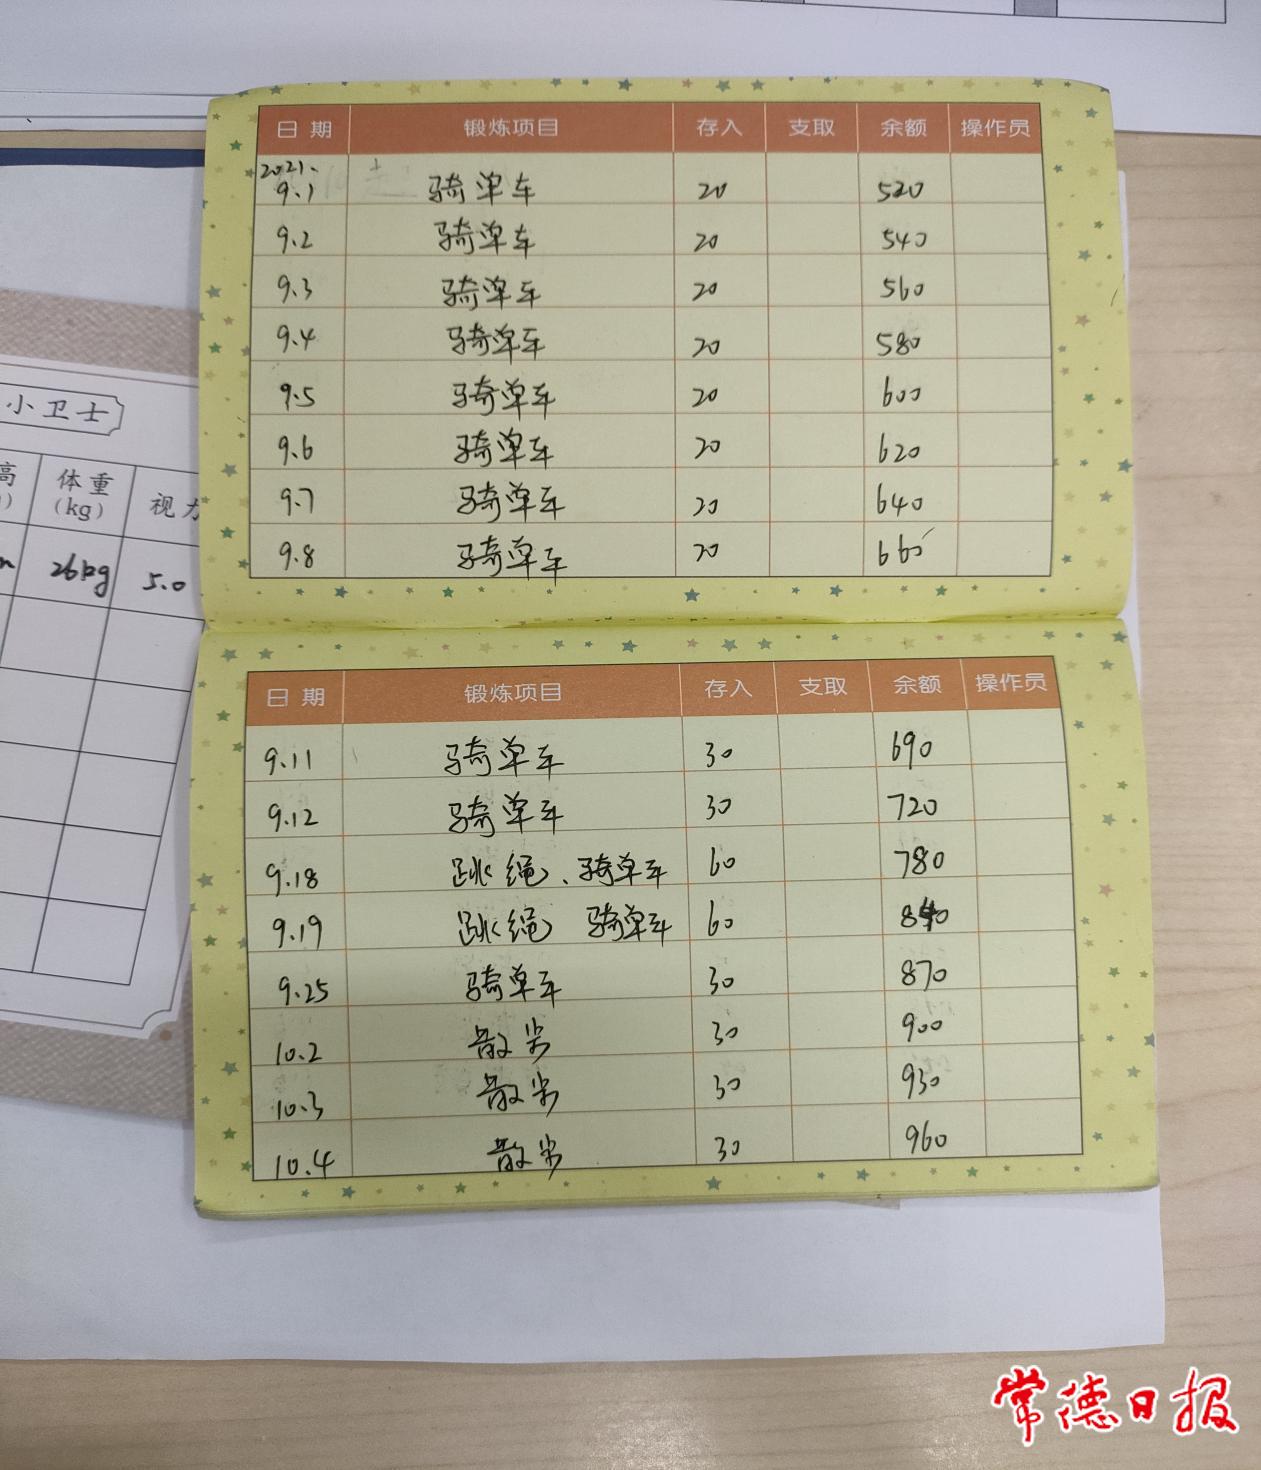 日 期 锻炼项目 存入 支取 余额 操作员
2021.
9.1 骑单车 20 520
9.2 骑单车 20 540
9.3 骑单车 20 560
9.4 骑单车 20 580
9.5 骑单车 20 600
9.6 骑单车 20 620
9.7 骑单车 20 640
9.8 骑单车 20 660
日 期 锻炼项目 存入 支取 余额 操作员
9.11 骑单车 30 690
9.12 骑单车 30 720
9.18 跳绳、骑单车 60 780
9.19 跳绳 骑单车 60 840
9.25 骑单车 30 870
10.2 散步 30 900
10.3 散步 30 930
10.4 散步 30 960
小卫士
高 体重 视力
(kg)
26kg 5.0
常德日报